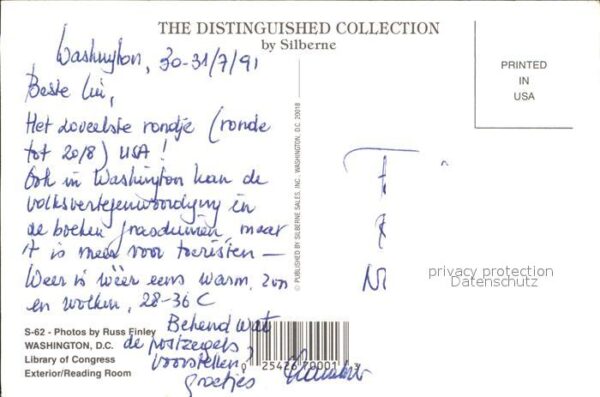 THE DISTINGUISHED COLLECTION
by Silberne
PRINTED
IN
USA
Washington, 30-31/7/91
Beste
Het zoveelste rondje (ronde
tot 20/8) USA!
Ook in Washington kan de
volksvertegenwoordiging én
de boeken grasduinen, maar
't is meer voor toeristen —
Weer is wéér eens warm, zon
en wolken, 28-36 C
Bekend wat
de postzegels
voorstellen?
groetjes
© PUBLISHED BY SILBERNE SALES, INC. WASHINGTON, D.C. 20018
S-62 - Photos by Russ Finley
WASHINGTON, D.C.
Library of Congress
Exterior/Reading Room
0 25426 70001 3
privacy protection
Datenschutz